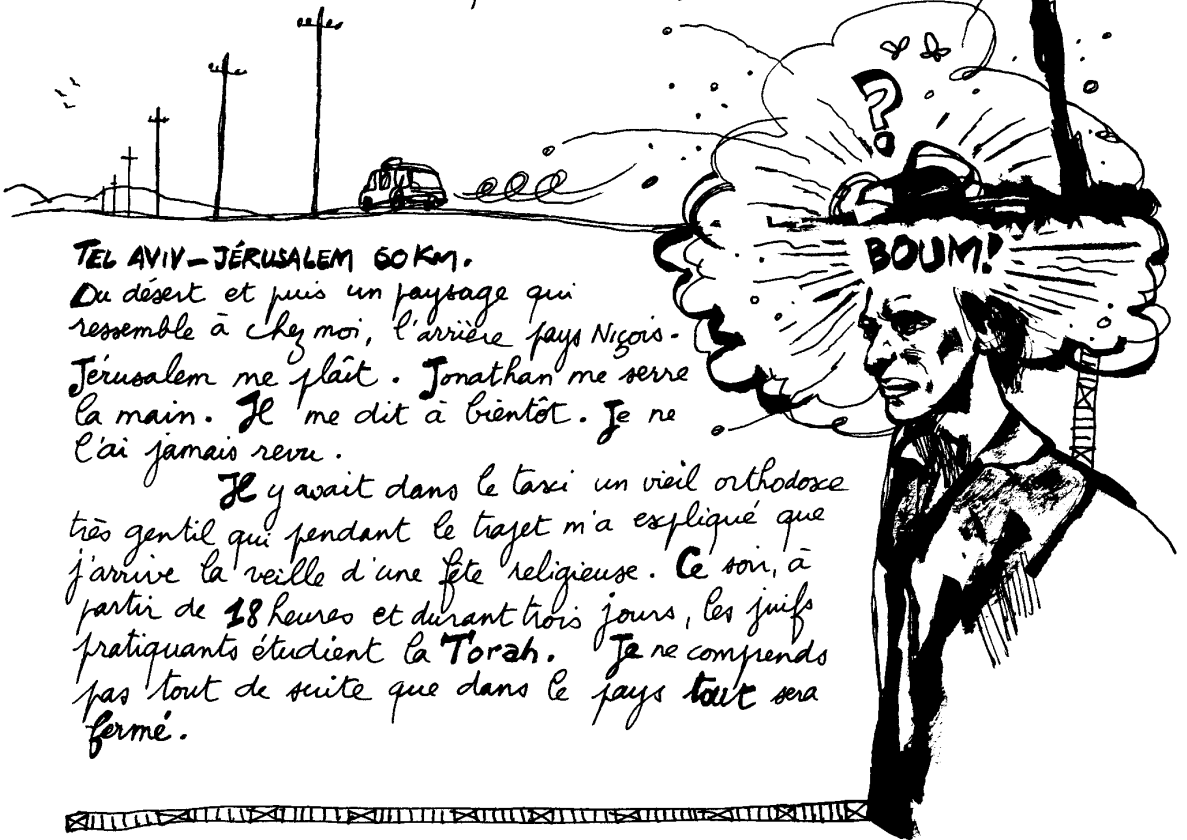 ?
BOUM!
TEL AVIV - JÉRUSALEM 60 KM.
Du désert et puis un paysage qui
ressemble à chez moi, l'arrière pays Niçois.
Jérusalem me plaît. Jonathan me serre
la main. Il me dit à bientôt. Je ne
l'ai jamais revu.
Il y avait dans le taxi un vieil orthodoxe
très gentil qui pendant le trajet m'a expliqué que
j'arrive la veille d'une fête religieuse. Ce soir, à
partir de 18 heures et durant trois jours, les juifs
pratiquants étudient la Torah. Je ne comprends
pas tout de suite que dans le pays tout sera
fermé.